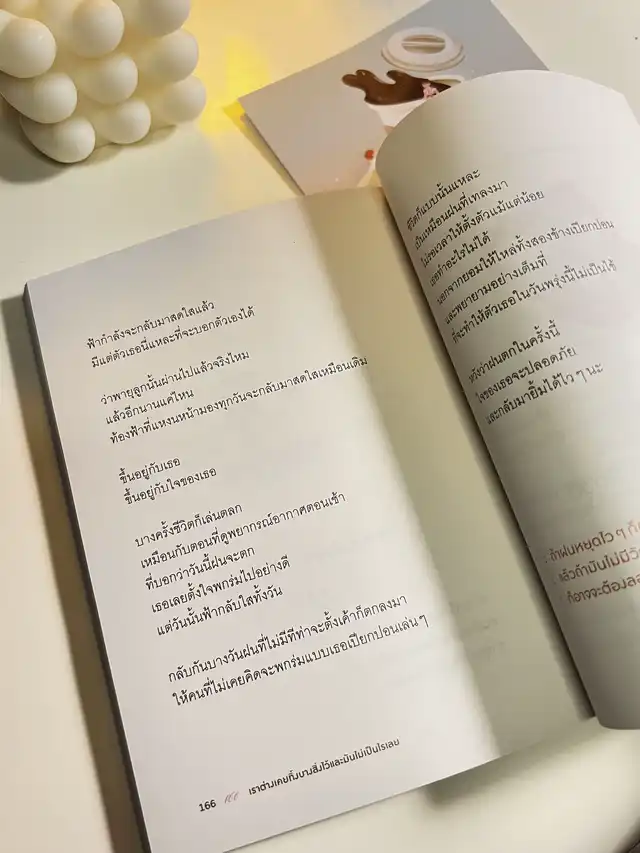 ฟ้ากำลังจะกลับมาสดใสแล้ว
มีแต่ตัวเธอนี่แหละที่จะบอกตัวเองได้
ว่าพายุลูกนั้นผ่านไปแล้วจริงไหม
แล้วอีกนานแค่ไหน
ท้องฟ้าที่แหงนหน้ามองทุกวันจะกลับมาสดใสเหมือนเดิม
ขึ้นอยู่กับเธอ
ขึ้นอยู่กับใจของเธอ
บางครั้งชีวิตก็เล่นตลก
เหมือนกับตอนที่ดูพยากรณ์อากาศตอนเช้า
ที่บอกว่าวันนี้ฝนจะตก
เธอเลยตั้งใจพกร่มไปอย่างดี
แต่วันนั้นฟ้ากลับใสทั้งวัน
กลับกันบางวันฝนที่ไม่มีทีท่าจะตั้งเค้าก็ตกลงมา
ให้คนที่ไม่เคยคิดจะพกร่มแบบเธอเปียกปอนเล่นๆ
166 เราต่างเคยทิ้งบางสิ่งไว้และมันไม่เป็นไรเลย
ชีวิตก็แบบนั้นแหละ
เป็นเหมือนฝนที่เทลงมา
ไม่รอเวลาให้ตั้งตัวแม้แต่น้อย
เธอทำอะไรไม่ได้
นอกจากยอมให้ไหล่ทั้งสองข้างเปียกปอน
และพยายามอย่างเต็มที่
ที่จะทำให้ตัวเธอในวันพรุ่งนี้ไม่เป็นไข้
หวังว่าฝนตกในครั้งนี้
ใจของเธอจะปลอดภัย
และกลับมายิ้มได้ไวๆ นะ
ถ้าฝนหยุดไวๆ ก็
แล้วถ้ามันไม่มี
ก็อาจจะต้อง